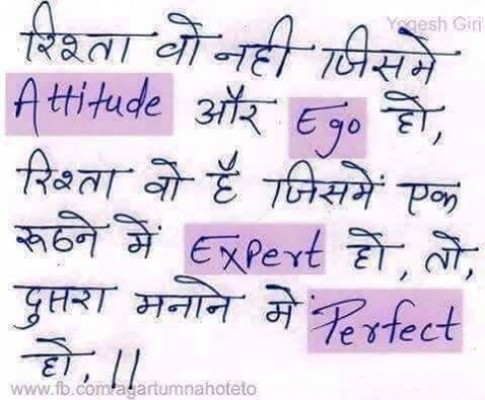 Yogesh Giri
रिश्ता वो नही जिसमे
Attitude और Ego हो,
रिश्ता वो है जिसमें एक
रूठने में Expert हो, तो,
दुसरा मनाने में Perfect
हो, ||
www.fb.com/agartumnahoteto